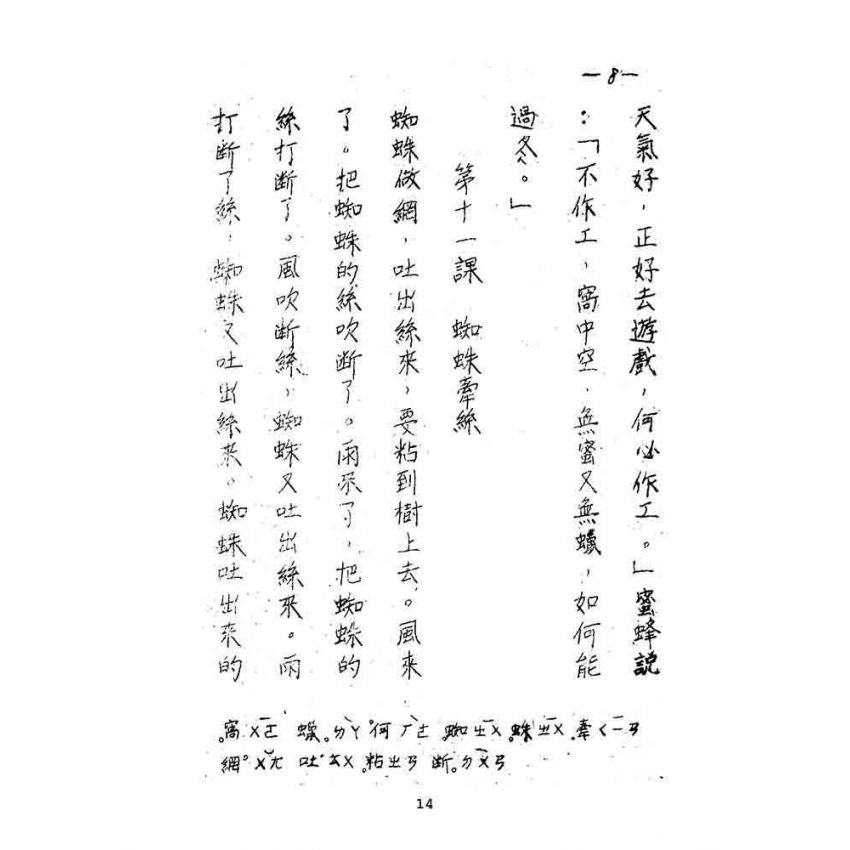 —8—
天氣好，正好去遊戲，何必作工。」蜜蜂説
：「不作工，窩中空，無蜜又無蠟，如何能
過冬。」
第十一課　蜘蛛牽絲
蜘蛛做網，吐出絲來，要粘到樹上去。風來
了。把蜘蛛的絲吹断了。雨來了，把蜘蛛的
絲打断了。風吹断絲，蜘蛛又吐出絲來。雨
打断了絲，蜘蛛又吐出絲來。蜘蛛吐出來的
窩ㄨㄛ 蠟ㄌㄚ 何ㄏㄜ 蜘ㄓㄨ 蛛ㄓㄨ 牽ㄑㄧㄢ
網ㄨㄤ 吐ㄊㄨ 粘ㄓㄢ 断ㄉㄨㄢ
14